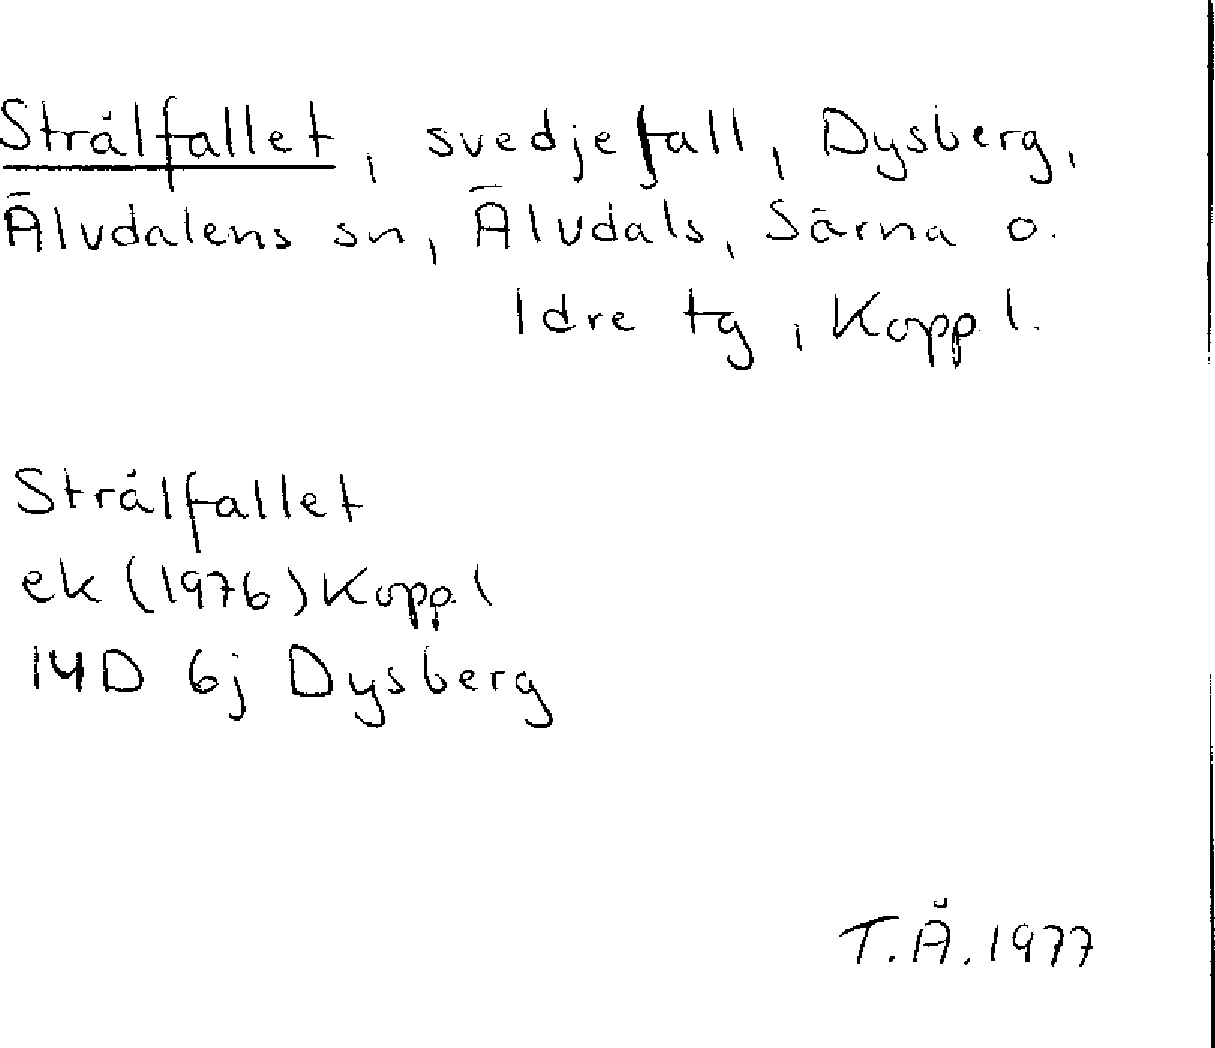 Strålfallet, svedjefall, Dysberg,
Älvdalens sn, Älvdals, Särna o.
Idre tg, Kopp l.
Strålfallet
ek (1976) Kopp. l
14D 6j Dysberg
T.Å. 1977